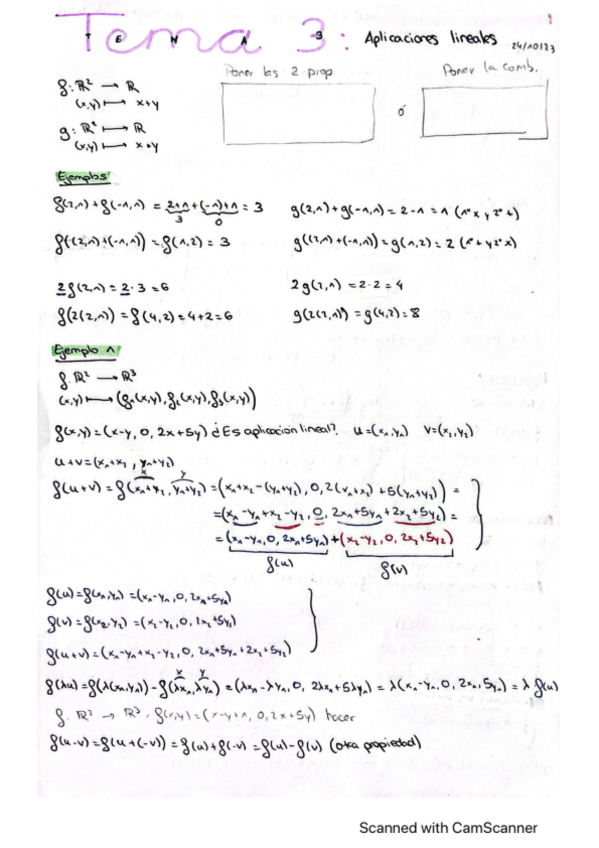 Tema 3: Aplicaciones lineales 24/10/23
T E M A 3
Poner las 2 prop ó Poner la comb.
f: ℝ² → ℝ
(x,y) ↦ x+y
g: ℝ² ↦ ℝ
(x,y) ↦ x+y
Ejemplos
f(2,1)+f(-1,1) = 2+1+(-1)+1 = 3 g(2,1)+g(-1,1) = 2-1 = 1
3 0
f((2,1)+(-1,1)) = f(1,2) = 3 g((2,1)+(-1,1)) = g(1,2) = 2
2f(2,1) = 2·3 = 6 2g(2,1) = 2·2 = 4
f(2(2,1)) = f(4,2) = 4+2 = 6 g(2(2,1)) = g(4,2) = 8
Ejemplo 1
f: ℝ² → ℝ³
(x,y) ↦ (f₁(x,y), f₂(x,y), f₃(x,y))
f(x,y) = (x-y, 0, 2x+5y) ¿Es aplicación lineal? u=(x₁,y₁) v=(x₂,y₂)
u+v = (x₁+x₂, y₁+y₂)
x y
f(u+v) = f(x₁+x₂, y₁+y₂) = (x₁+x₂-(y₁+y₂), 0, 2(x₁+x₂)+5(y₁+y₂)) =
= (x₁-y₁+x₂-y₂, 0, 2x₁+5y₁+2x₂+5y₂) =
= (x₁-y₁, 0, 2x₁+5y₁)+(x₂-y₂, 0, 2x₂+5y₂)
f(u) f(v)
f(u) = f(x₁,y₁) = (x₁-y₁, 0, 2x₁+5y₁)
f(v) = f(x₂,y₂) = (x₂-y₂, 0, 2x₂+5y₂)
f(u+v) = (x₁-y₁+x₂-y₂, 0, 2x₁+5y₁+2x₂+5y₂)
x y
f(λu) = f(λ(x₁,y₁)) = f(λx₁,λy₁) = (λx₁-λy₁, 0, 2λx₁+5λy₁) = λ(x₁-y₁, 0, 2x₁,5y₁) = λ f(u)
f: ℝ² → ℝ³, f(x,y) = (x-y+1, 0, 2x+5y) hacer
f(u-v) = f(u+(-v)) = f(u)+f(-v) = f(u)-f(v) (otra propiedad)
Scanned with CamScanner